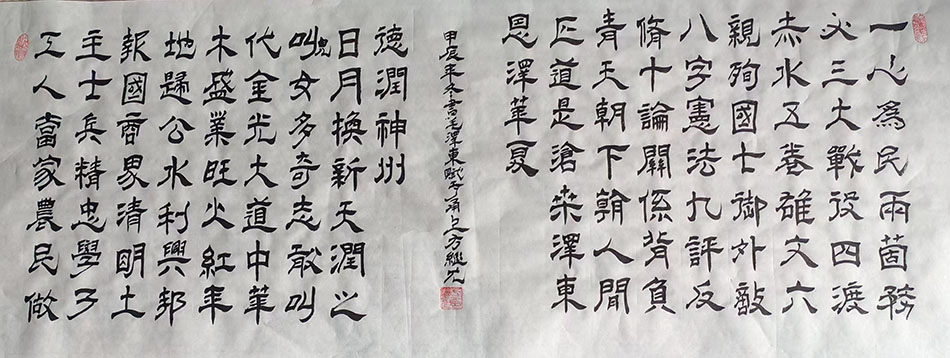 一心為民兩箇務
必三大戰役四渡
赤水五卷雄文六
親殉國士御外敵
八字憲法九評反
脩十論關係背負
青天朝下翰人間
正道是滄桑澤東
恩澤華夏
工人當家農民做
主士兵精忠學子
報國商界清明土
地歸公水利興邦
木盛業旺火紅年
代金光大道中華
叫兒女多奇志敢叫
日月換新天潤之
德潤神州
甲辰年冬書毛澤東賦